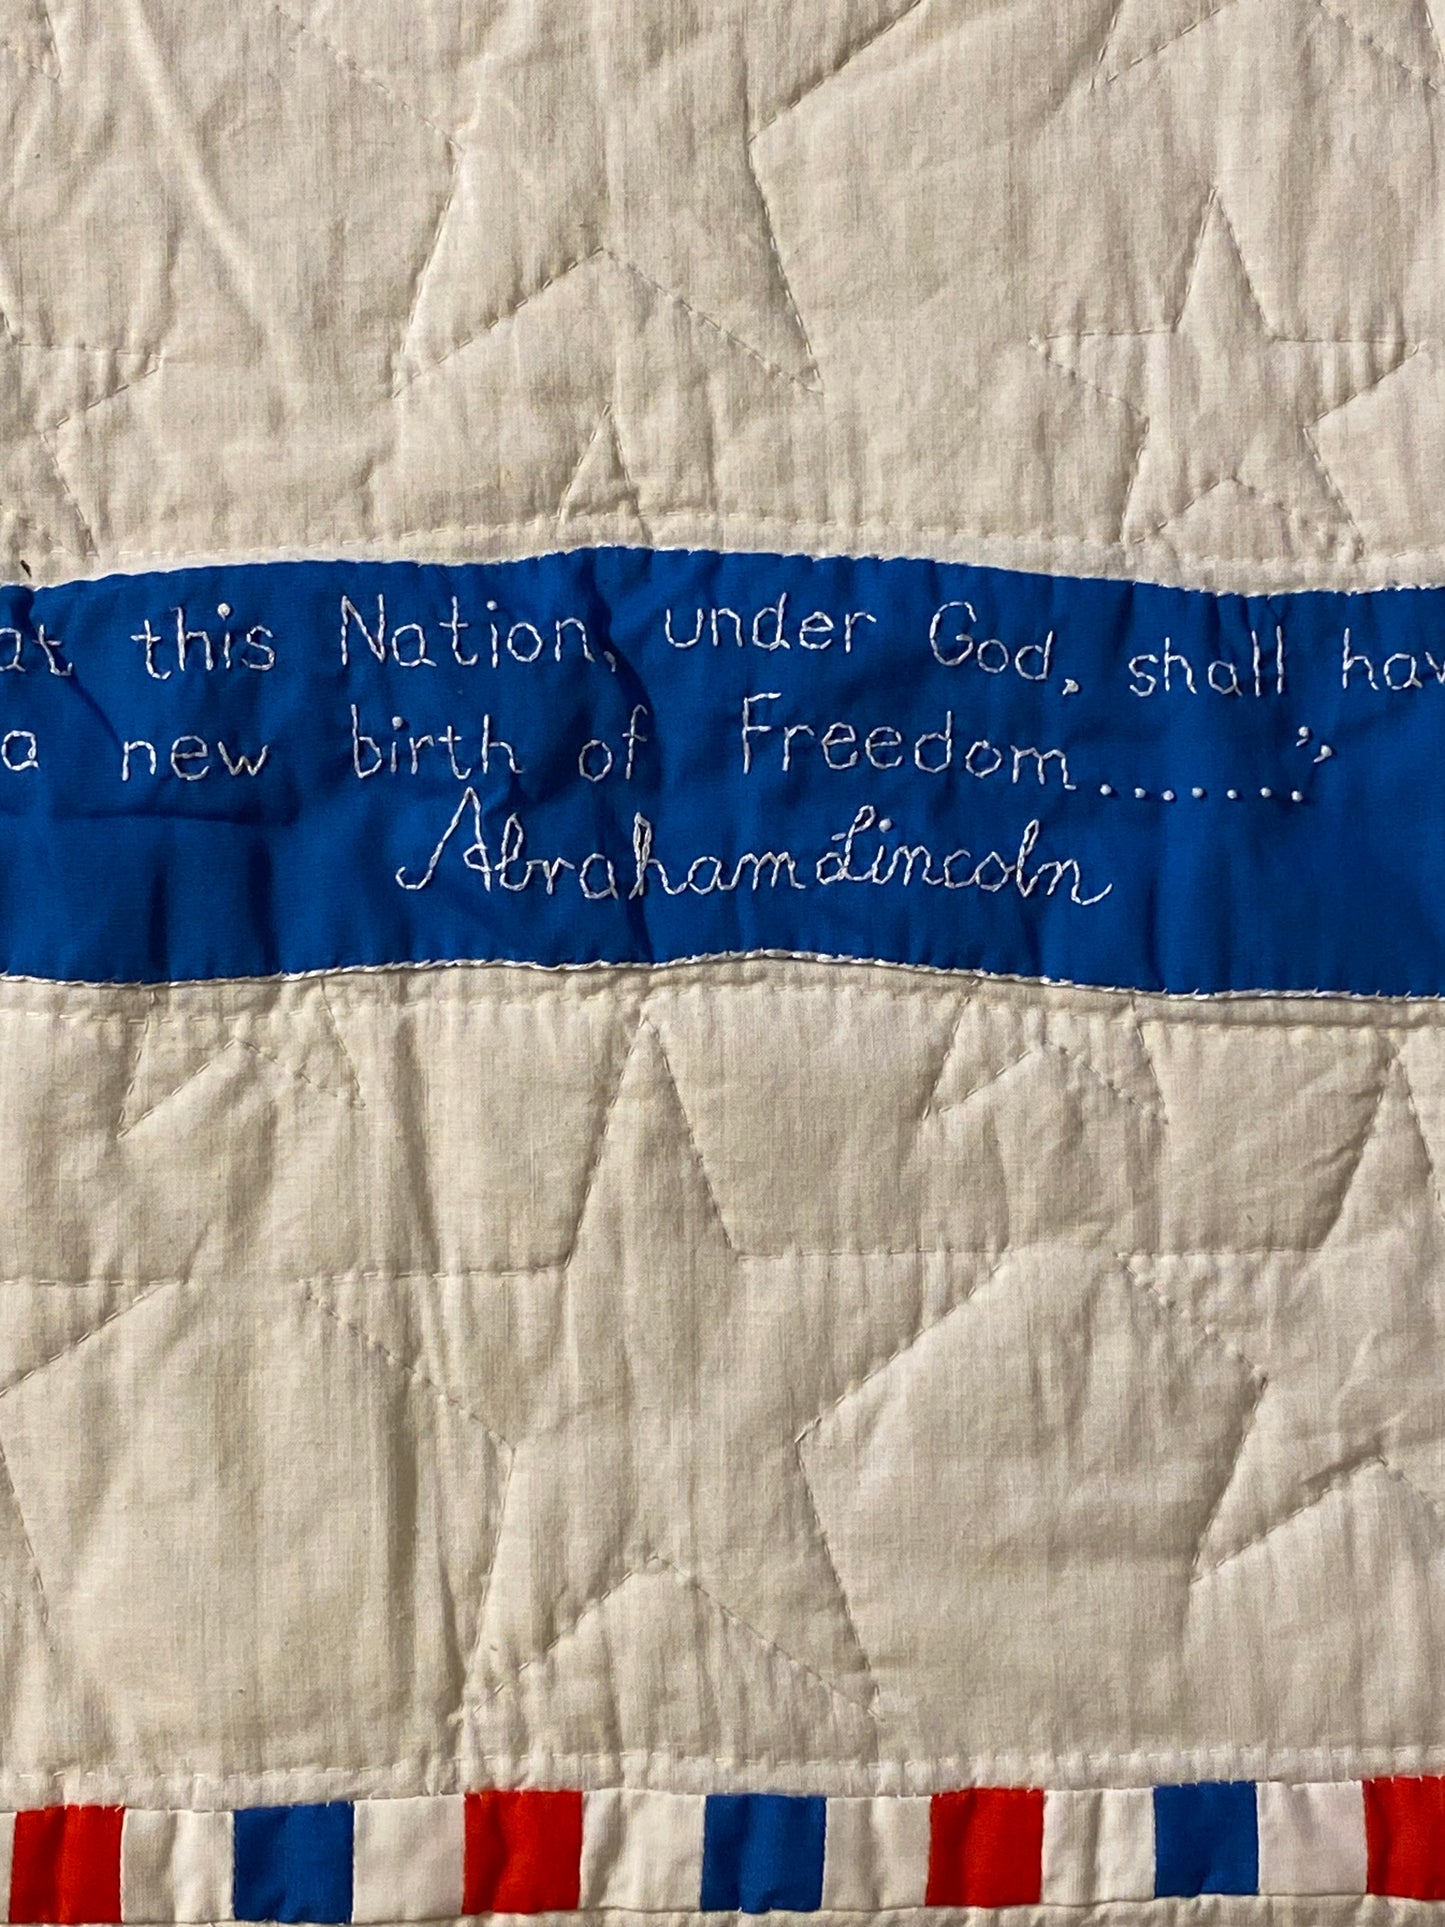 at this Nation, under God, shall hav
a new birth of Freedom........”
Abraham Lincoln